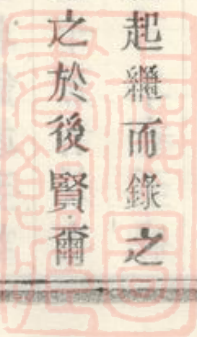 起繼而錄之
之於後賢爾